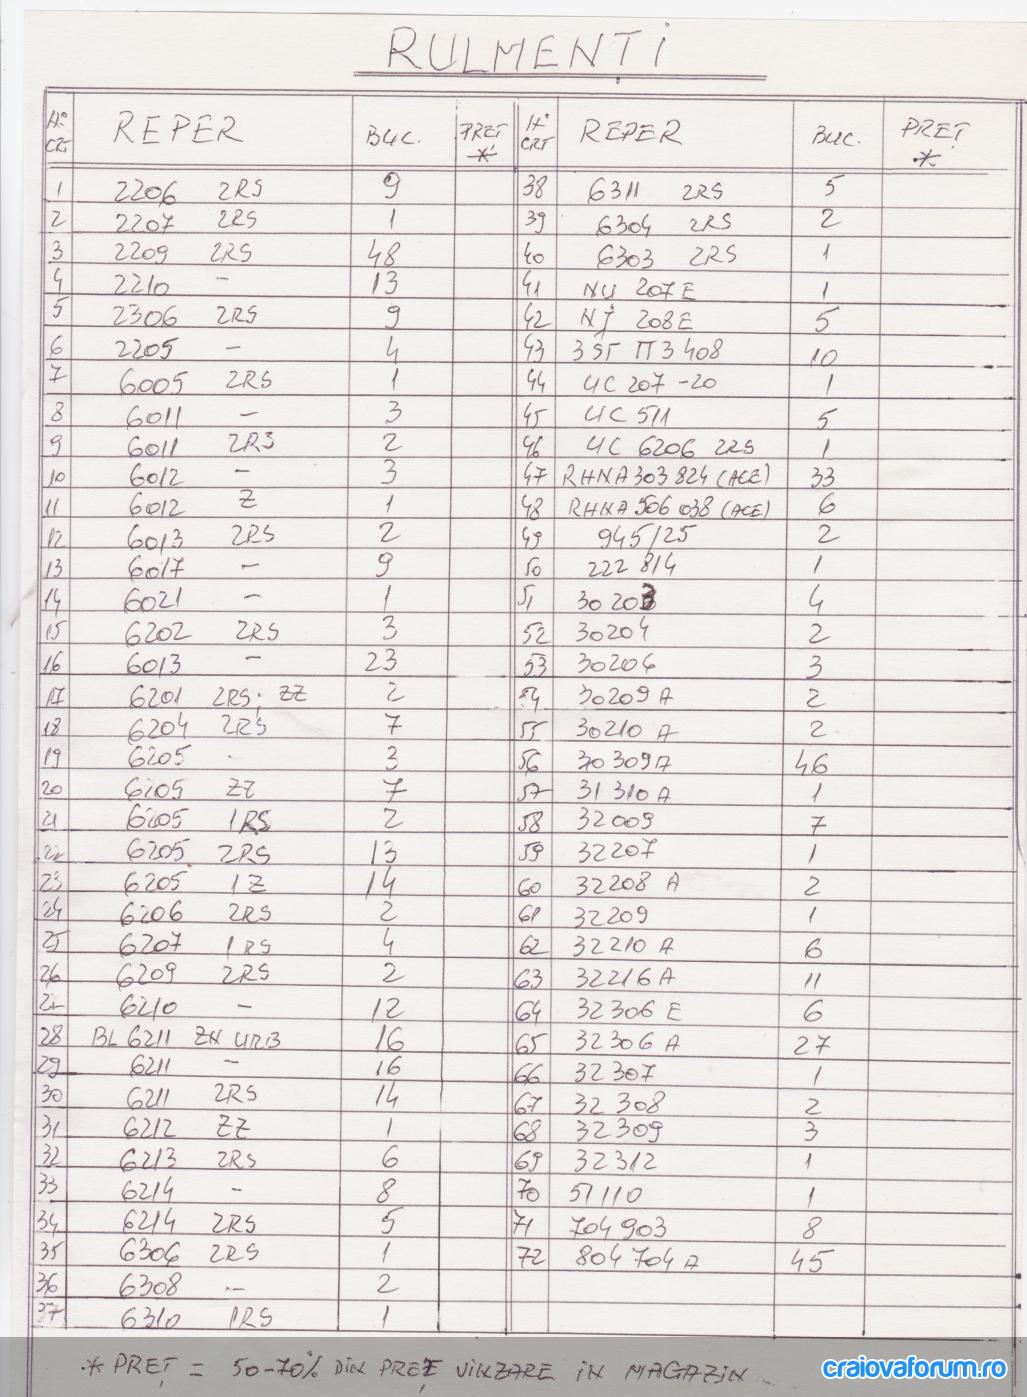 RULMENȚI
Nº CRT REPER BUC. PREȚ * Nº CRT REPER BUC. PREȚ *
1 2206 2RS 9 38 6311 2RS 5
2 2207 2RS 1 39 6304 2RS 2
3 2209 2RS 48 40 6303 2RS 1
4 2210 - 13 41 NU 207E 1
5 2306 2RS 9 42 NJ 208E 5
6 2205 - 4 43 3ST П3 408 10
7 6005 2RS 1 44 UC 207 -20 1
8 6011 - 3 45 UC 511 5
9 6011 2RS 2 46 UC 6206 2RS 1
10 6012 - 3 47 RHNA303824 (ACE) 33
11 6012 Z 1 48 RHNA506038 (ACE) 6
12 6013 2RS 2 49 945/25 2
13 6017 - 9 50 222814 1
14 6021 - 1 51 30203 4
15 6202 2RS 3 52 30204 2
16 6013 - 23 53 30204 3
17 6201 2RS; ZZ 2 54 30209 A 2
18 6204 2RS 7 55 30210 A 2
19 6205 - 3 56 30309A 46
20 6205 ZZ 7 57 31310A 1
21 6205 1RS 2 58 32009 7
22 6205 2RS 13 59 32207 1
23 6205 1Z 14 60 32208 A 2
24 6206 2RS 2 61 32209 1
25 6207 1RS 4 62 32210 A 6
26 6209 2RS 2 63 32216A 11
27 6210 - 12 64 32306 E 6
28 BL 6211 ZN URB 16 65 32306 A 27
29 6211 - 16 66 32307 1
30 6211 2RS 14 67 32308 2
31 6212 ZZ 1 68 32309 3
32 6213 2RS 6 69 32312 1
33 6214 - 8 70 51110 1
34 6214 2RS 5 71 704903 8
35 6306 2RS 1 72 804704A 45
36 6308 - 2
37 6310 1RS 1
* PREȚ = 50-70% DIN PREȚ VINZARE IN MAGAZIN
craiovaforum.ro